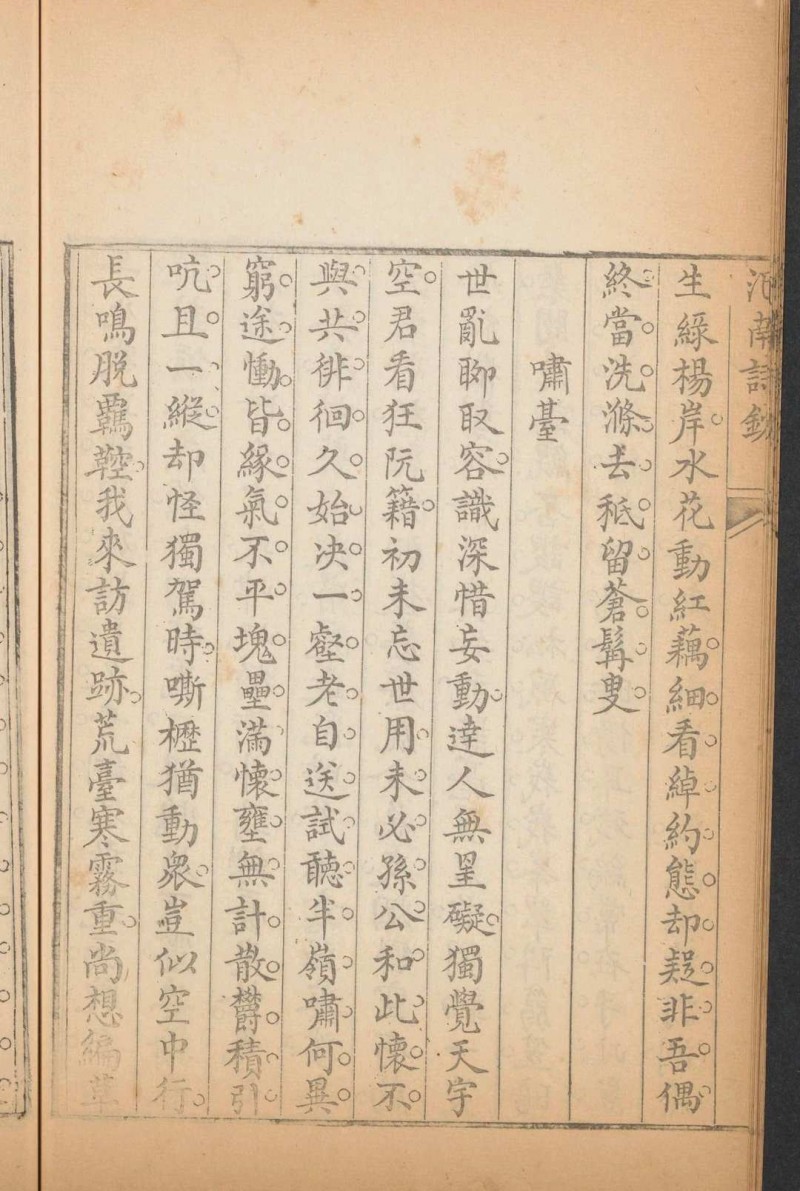 河南詩鈔
生綠楊岸水花動紅藕細看綽約態却疑非吾偶
終當洗滌去秪留蒼髯叟
嘯臺
世亂聊取容識深惜妄動達人無罣礙獨覺天宇
空君看狂阮籍初未忘世用未必孫公和此懷不
與共徘徊久始决一壑老自送試聽半嶺嘯何異
窮途慟皆緣氣不平塊壘滿懷壅無計散鬱積引
吭且一縱却怪獨駕時嘶櫪猶動衆豈似空中行
長鳴脫羈鞚我來訪遺跡荒臺寒霧重尚想編草